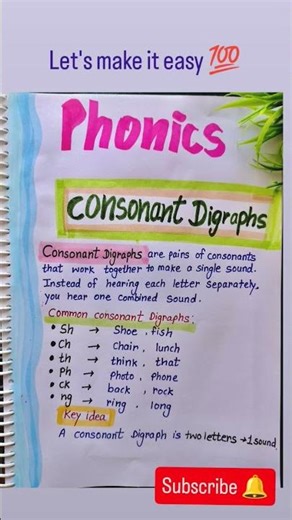 Let's make it easy 💯
Phonics
Consonant Digraphs
Consonant Digraphs are pairs of consonants
that work together to make a single sound.
Instead of hearing each letter separately.
you hear one combined sound.
Common consonant Digraphs:
• Sh → Shoe, fish
• Ch → chain, lunch
• th → think, that
• Ph → Photo, phone
• ck → back, rock
• ng → ring, long
Key idea
A consonant Digraph is two letters → 1 sound.
Subscribe 🔔